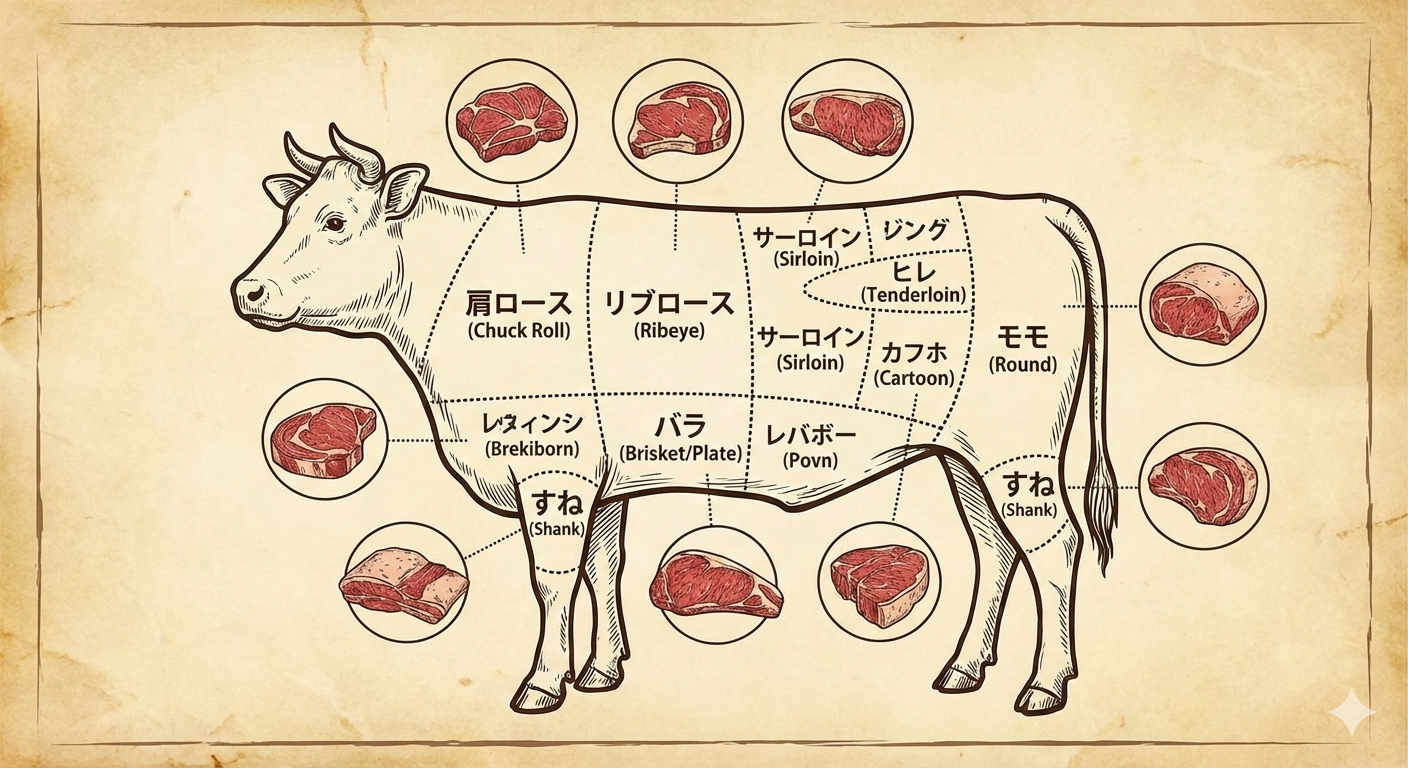 サーロイン
(Sirloin)
ジング
ヒレ
(Tenderloin)
肩ロース
(Chuck Roll)
リブロース
(Ribeye)
サーロイン
(Sirloin)
カフホ
(Cartoon)
モモ
(Round)
(Brekiborn)
バラ
(Brisket/Plate)
レバボー
(Povn)
すね
(Shank)
すね
(Shank)